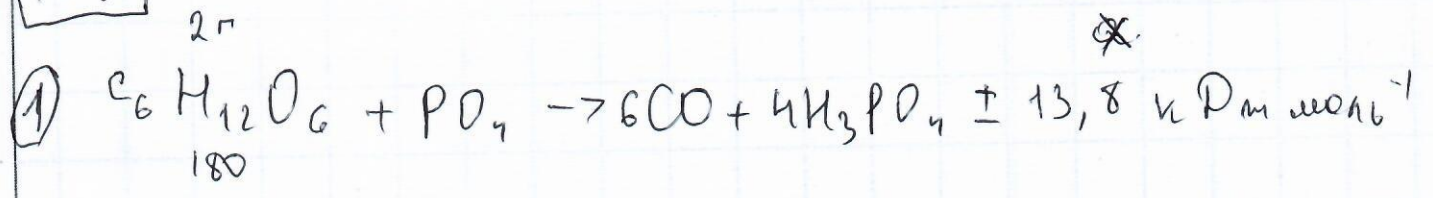 2 г
① C₆H₁₂O₆ + PO₄ → 6CO + 4H₃PO₄ ± 13,8 кДж моль⁻¹
180